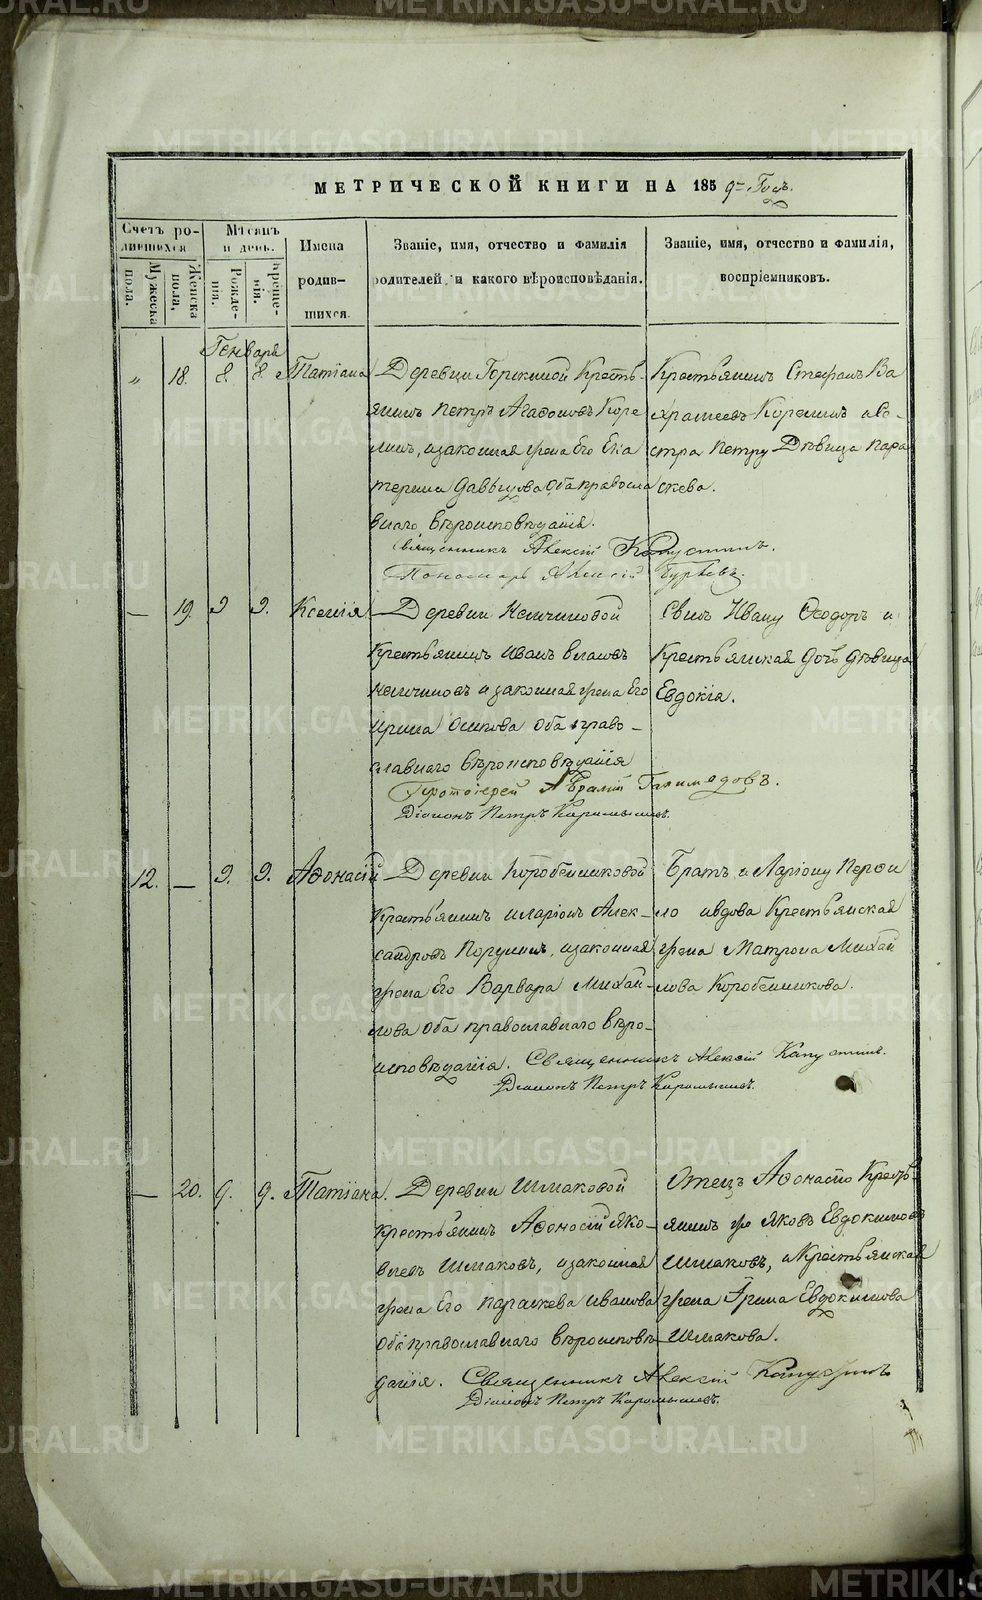 METRIKI.GASO-URAL.RU
МЕТРИЧЕСКОЙ КНИГИ НА 1859й Годъ.
Счетъ родившихся
Мужеска пола.
Женска пола,
Мѣсяцъ и день.
Рожденія.
Крещенія.
Имена родившихся.
Званіе, имя, отчество и фамилія
родителей, и какого вѣроисповѣданія.
Званіе, имя, отчество и фамилія,
воспріемниковъ.
Генваря
„ 18. 8. 8. Татіана
Деревни Крестья-
янинъ Петръ Агафоновъ Коре
линъ, изаконная жена Его Ека
терина Давыдова оба правосла
внаго вѣроисповѣданія.
Крестьянинъ Стефанъ Ва
храмеевъ Корелинъ и се-
стра Петру Дѣвица Пара
скева.
Священникъ Алексій Капустинъ.
Пономарь Алексій Гурьевъ.
— 19. 9 9. Ксенія
Деревни
Крестьянинъ Иванъ Власовъ
изаконная жена Его
Ирина Осипова Оба право-
славнаго вѣроисповѣданія
Сынъ Ивану Ѳеодоръ и
Крестьянская дочь дѣвица
Евдокія.
Протоіерей
Діаконъ Петръ Карамышевъ.
12. — 9. 9. Афонасій
Деревни Коробейниковой
Крестьянинъ Иларіонъ Алек-
сандровъ изаконная
жена Его Варвара Михай-
лова Оба православнаго вѣро-
исповѣданія. Священникъ Алексій Капустинъ.
Діаконъ Петръ Карамышевъ.
Братъ и Ларіону Перфи
ло ивдова Крестьянская
жена Матрона Михай
лова Коробейникова.
— 20. 9. 9. Татіана.
Деревни Шмаковой
Крестьянинъ Афонасій Яко-
влевъ Шмаковъ, изаконная
жена Его Параскева Иванова
оба православнаго вѣроисповѣ
данія. Священникъ Алексій Капустинъ
Діаконъ Петръ Карамышевъ.
Отецъ Афонасію Кресть-
янинъ же Яковъ Евдокимовъ
Шмаковъ, и Крестьянская
жена Ирина Евдокимова
Шмакова.